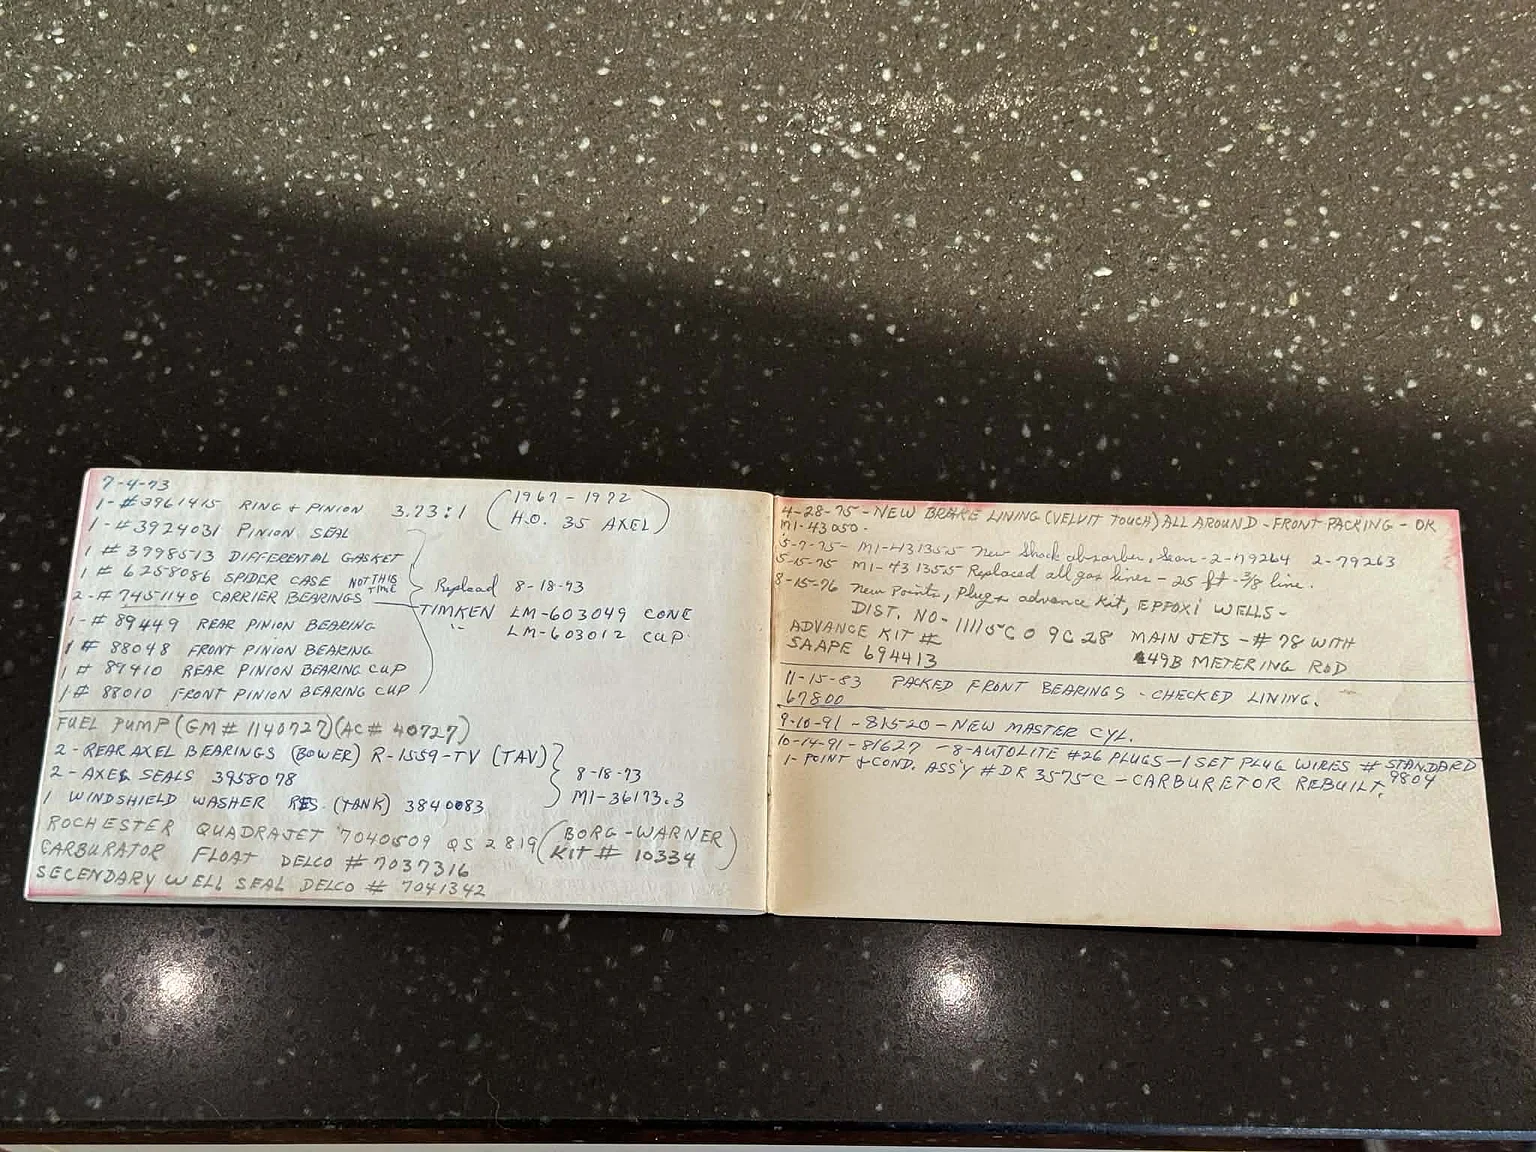 7-4-73
1-#3961415 RING & PINION 3.73:1 (1967-1972
H.O. 35 AXEL)
1-#3924031 PINION SEAL
1 # 3998513 DIFFERENTIAL GASKET
1 # 6258086 SPIDER CASE NOT THIS TIME
2-# 7451140 CARRIER BEARINGS
Replaced 8-18-73
TIMKEN LM-603049 CONE
" LM-603012 CUP
1-# 89449 REAR PINION BEARING
1 # 88048 FRONT PINION BEARING
1 # 89410 REAR PINION BEARING CUP
1 # 88010 FRONT PINION BEARING CUP
FUEL PUMP (GM # 1140727) (AC # 40727)
2-REAR AXEL BEARINGS (BOWER) R-1559-TV (TAV)
2-AXEL SEALS 3958078
1 WINDSHIELD WASHER RES. (TANK) 3840083
8-18-73
MI-36173.3
ROCHESTER QUADRAJET 7040509 QS 2819 (BORG-WARNER
KIT # 10334)
CARBURATOR FLOAT DELCO # 7037316
SECENDARY WELL SEAL DELCO # 7041342
4-28-75-NEW BRAKE LINING (VELVIT TOUCH) ALL AROUND-FRONT PACKING-OK
MI-43050-
5-7-75- MI-43135.5 New Shock absorber, Sears-2-79264 2-79263
5-15-75 MI-43135.5 Replaced all gas lines-25 ft-3/8 line.
8-15-76 New Points, Plugs advance Kit, EPPOXI WELLS-
DIST. NO-1111 5C 0 9C 28 MAIN JETS-#78 WITH
49B METERING ROD
ADVANCE KIT #
SAAPE 694413
11-15-83 PACKED FRONT BEARINGS-CHECKED LINING.
67800
9-10-91-81520-NEW MASTER CYL.
10-14-91-81627-8-AUTOLITE #26 PLUGS-1 SET PLUG WIRES # STANDARD
9804
1-POINT & COND. ASS'Y #DR 3575C-CARBURETOR REBUILT.